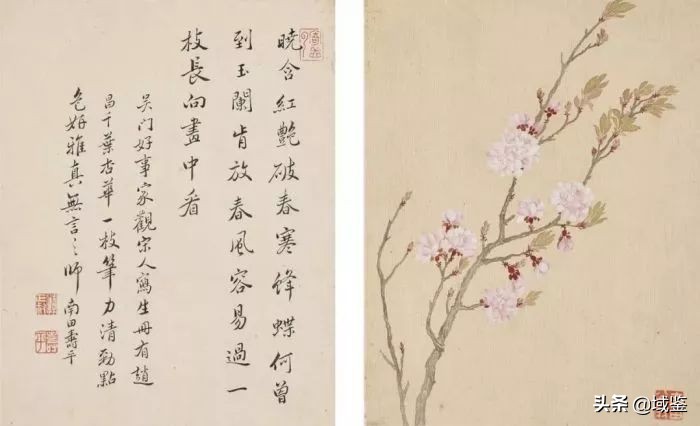 曉含紅艷破春寒蜂蝶何曾
到玉闌肯放春風容易過一
枝長向畫中看
吳門好事家觀宋人寫生冊有趙
昌千葉杏華一枝筆力清勁點
色妍雅真無言之師 南田壽平
头条 @域鉴